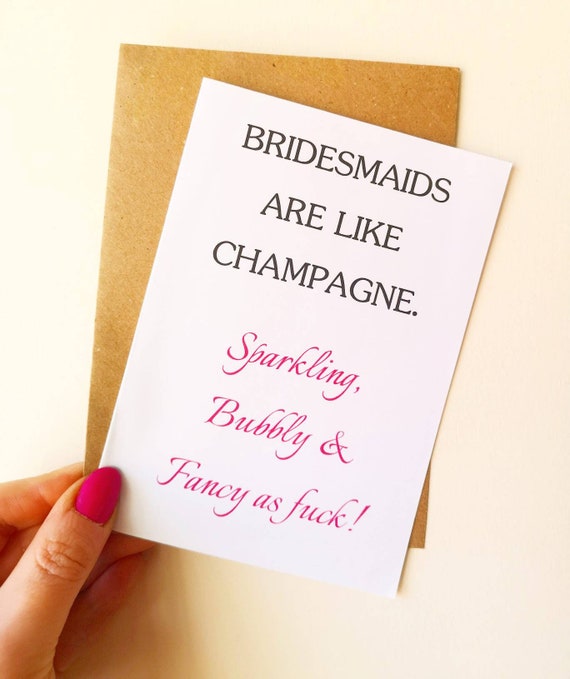 BRIDESMAIDS
ARE LIKE
CHAMPAGNE.
Sparkling,
Bubbly &
Fancy as fuck!